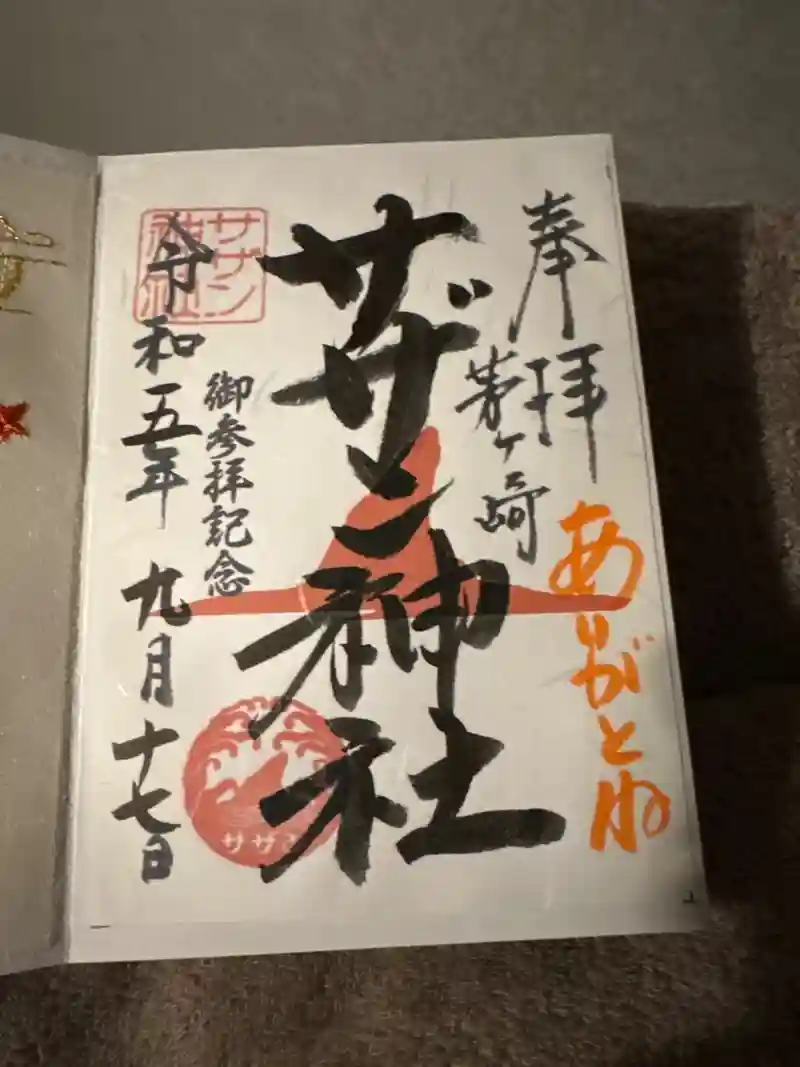 奉拝
茅ヶ崎
ありがとね
サザン神社
御参拝記念
令和五年 九月十七日
サザン
神社
サザ